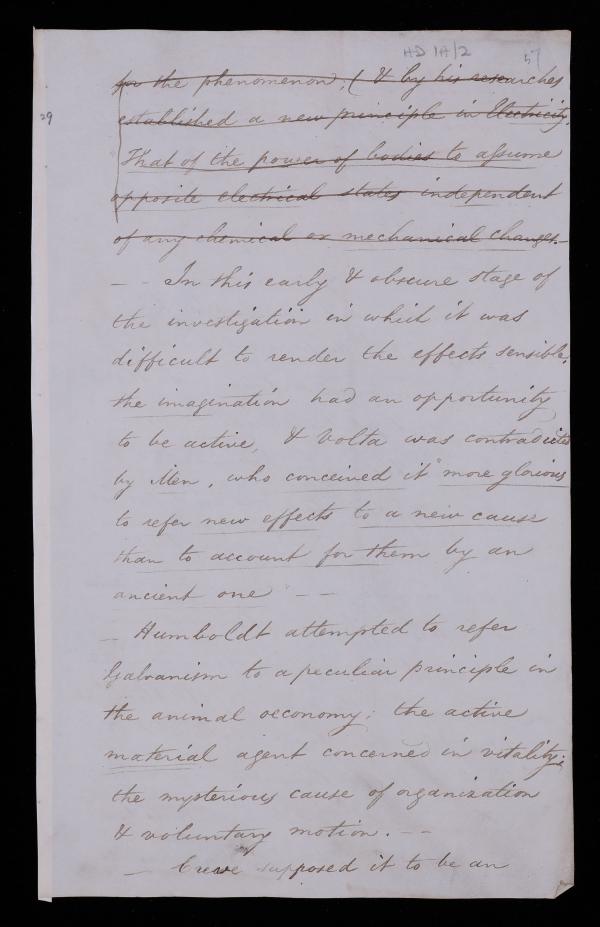 HD 1A/2
57
29
for the phenomenon, (& by his researches
established a new principle in Electricity.
That of the power of bodies to assume
opposite electrical states independent
of any chemical or mechanical changes.—
— - In this early & obscure stage of
the investigation in which it was
difficult to render the effects sensible,
the imagination had an opportunity
to be active, & Volta was contradicted
by Men, who conceived it "more glorious
to refer new effects to a new cause
than to account for them by an
ancient one" — —
— Humboldt attempted to refer
Galvanism to a peculiar principle in
the animal œconomy; the active
material agent concerned in vitality;
the mysterious cause of organization
& voluntary motion. — —
— Creve supposed it to be an